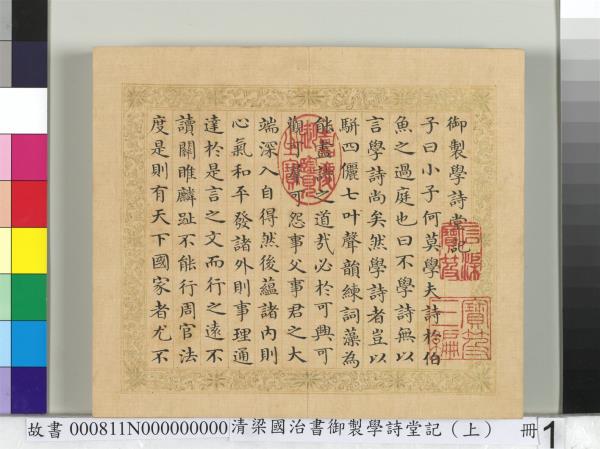 御製學詩堂記
子曰小子何莫學夫詩於伯
魚之過庭也曰不學詩無以
言學詩尚矣然學詩者豈以
駢四儷七叶聲韻練詞藻為
能盡詩之道哉必於可興可
觀可羣可怨事父事君之大
端深入自得然後蘊諸內則
心氣和平發諸外則事理通
達於是言之文而行之遠不
讀關雎麟趾不能行周官法
度是則有天下國家者尤不
石渠寶笈
寶笈三編
嘉慶御覽之寶
故書 000811N000000000 清梁國治書御製學詩堂記（上） 冊 1